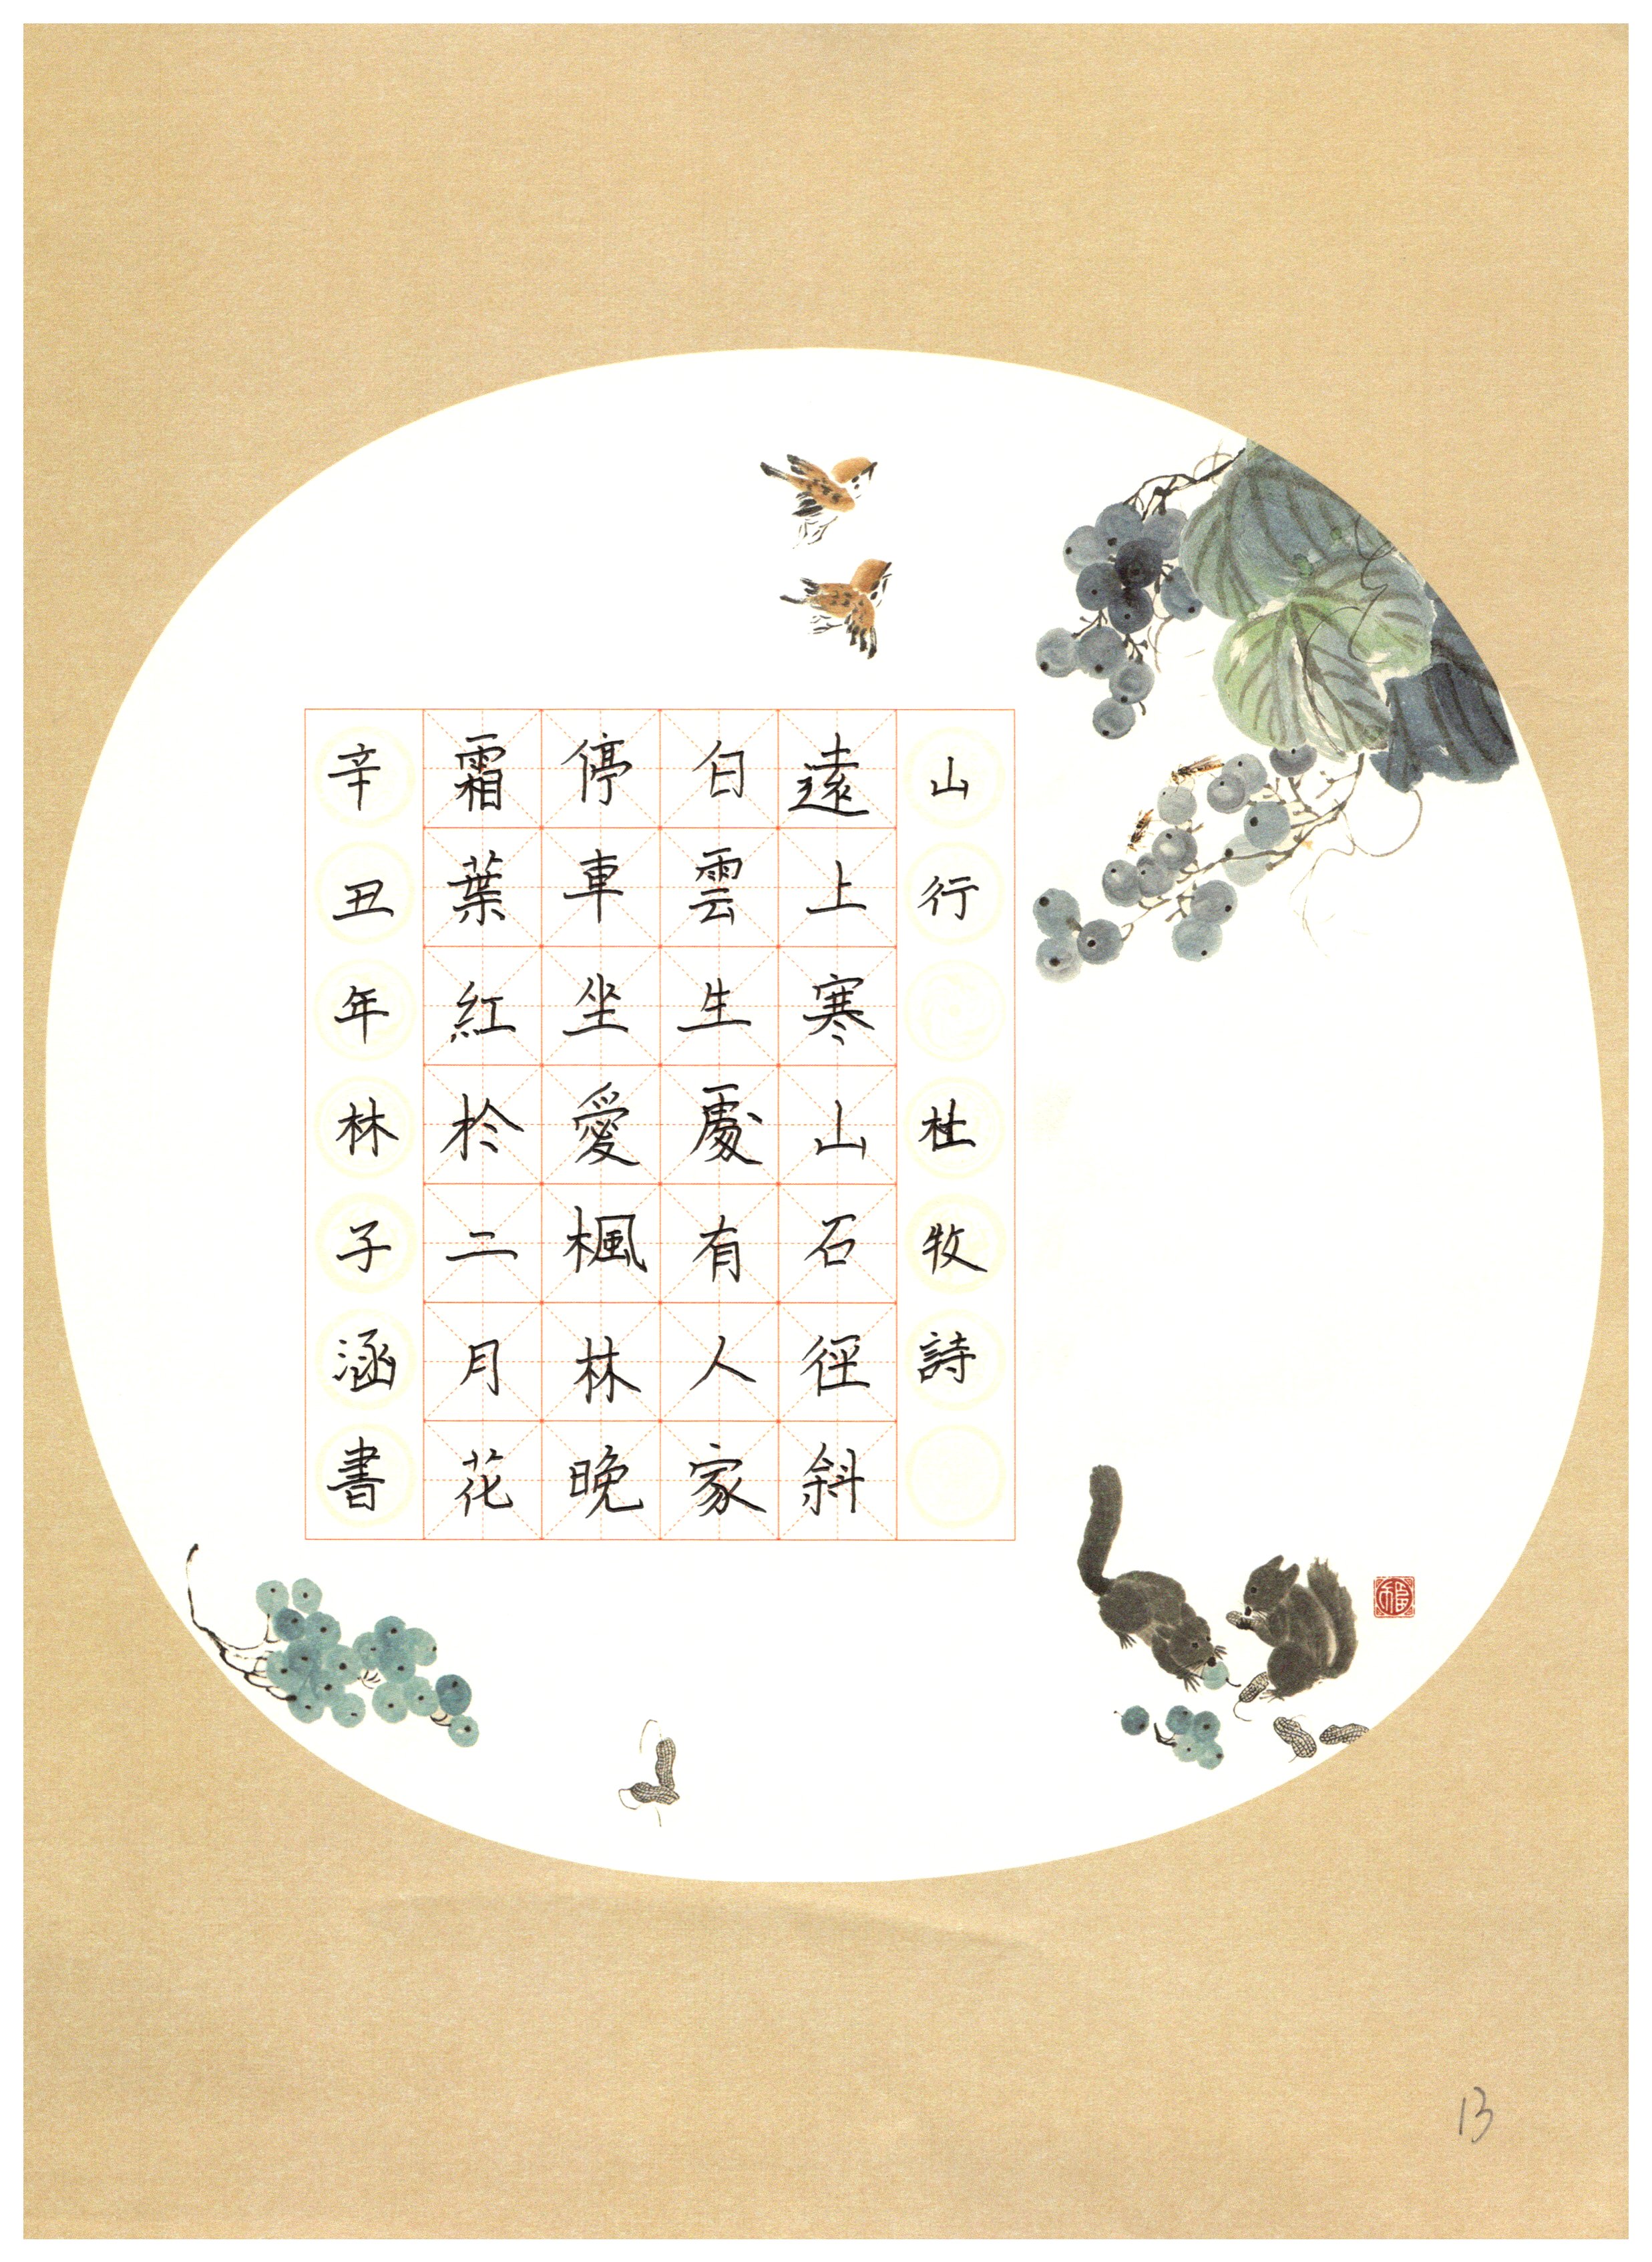 山行 杜牧詩
遠上寒山石徑斜
白雲生處有人家
停車坐愛楓林晚
霜葉紅於二月花
辛丑年林子涵書
福
13